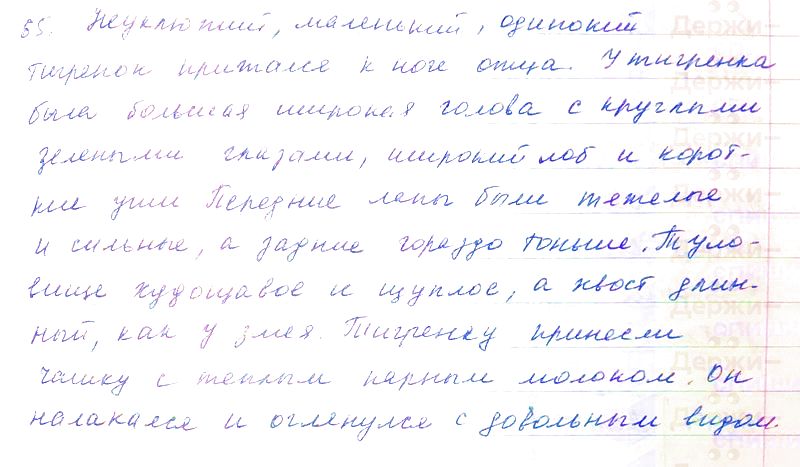 55. Неуклюжий, маленький, одинокий
тигренок прижался к ноге отца. У тигренка
была большая широкая голова с круглыми
зелеными глазами, широкий лоб и корот-
кие уши Передние лапы были тяжелые
и сильные, а задние гораздо тоньше. Туло-
вище худощавое и щуплое, а хвост длин-
ный, как у змея. Тигренку принесли
чашку с теплым парным молоком. Он
налакался и оглянулся с довольным видом
Держи-
Держи-
Держи-
Держи-
Держи-
Держи-